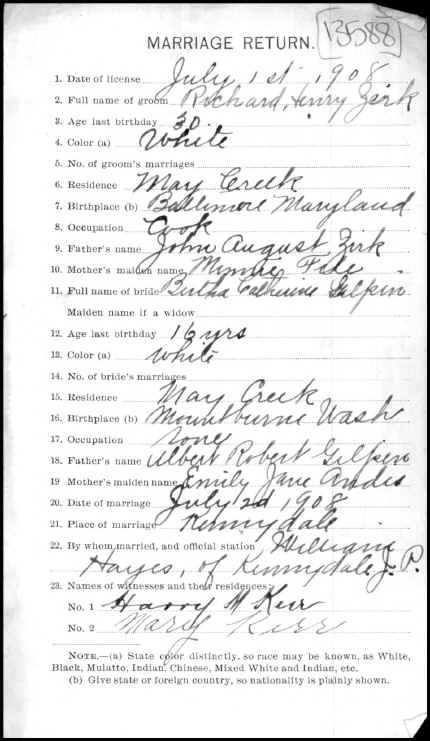 13588
MARRIAGE RETURN.
1. Date of license July 1st, 1908
2. Full name of groom Richard, Henry Zirk
3. Age last birthday 30.
4. Color (a) White
5. No. of groom's marriages
6. Residence May Creek
7. Birthplace (b) Baltimore Maryland
8. Occupation Cook
9. Father's name John August Zirk
10. Mother's maiden name Minnie
11. Full name of bride Bertha Catherine Gilpin
Maiden name if a widow
12. Age last birthday 16 yrs
13. Color (a) White
14. No. of bride's marriages
15. Residence May Creek
16. Birthplace (b) Mountburne Wash
17. Occupation None
18. Father's name Albert Robert Gilpin
19 Mother's maiden name Emily Jane
20. Date of marriage July 2d, 1908
21. Place of marriage Kennydale
22. By whom married, and official station William
Hayes, of Kennydale J. P.
23. Names of witnesses and their residences:
No. 1 Harry M Kerr
No. 2 Mary Kerr
NOTE.—(a) State color distinctly, so race may be known, as White,
Black, Mulatto, Indian, Chinese, Mixed White and Indian, etc.
(b) Give state or foreign country, so nationality is plainly shown.